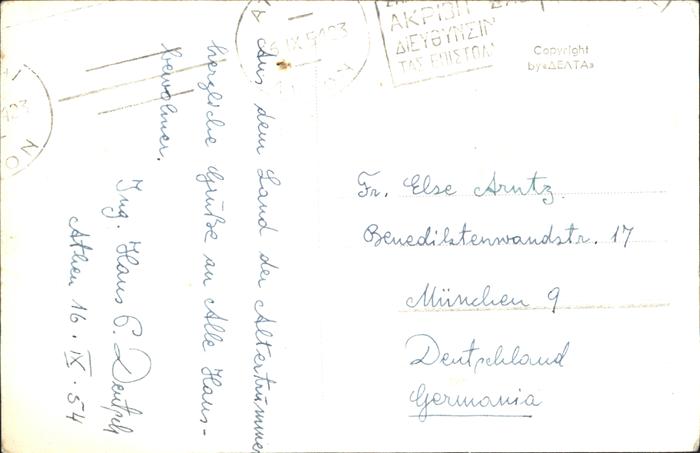 Aus dem Land der Altertümmer
herzliche Grüße an Alle Haus-
bewohner.
Ing. Hans P. Deutsch
Athen 16. IX. 54
ΑΚΡΙΒΗ
ΔΙΕΥΘΥΝΣΙΝ
ΤΑΣ ΕΠΙΣΤΟΛ
Copyright
by «ΔΕΛΤΑ»
Fr. Else Arntz
Benediktenwandstr. 17
München 9
Deutschland
Germania